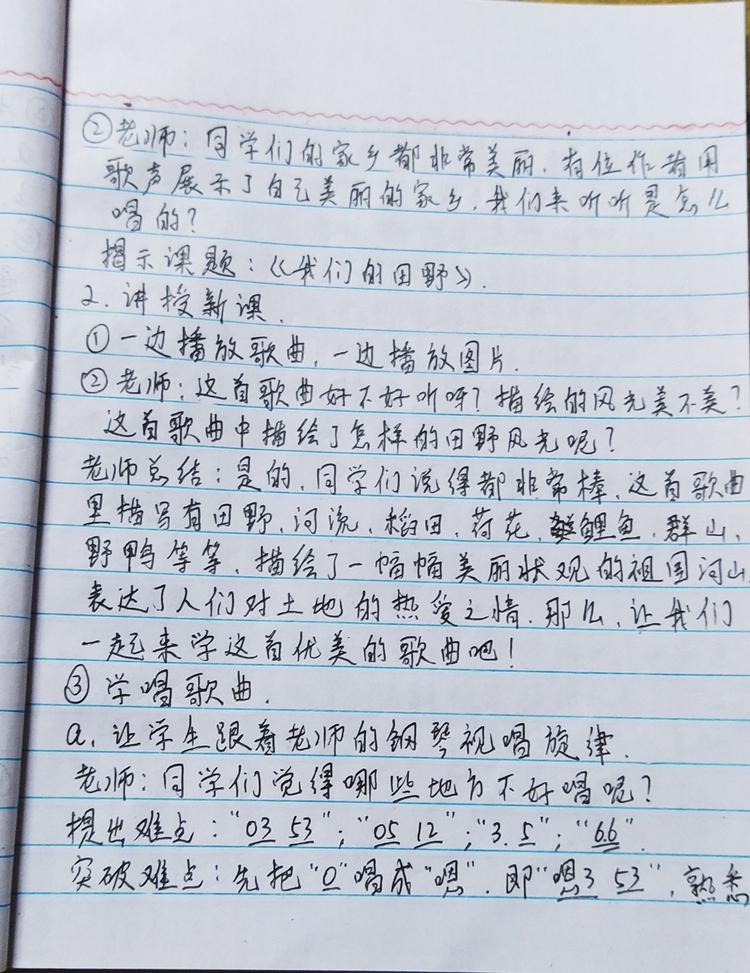 ②老师：同学们的家乡都非常美丽，有位作者用
歌声展示了自己美丽的家乡，我们来听听是怎么
唱的？
揭示课题：《我们的田野》.
2.讲授新课.
①一边播放歌曲，一边播放图片.
②老师：这首歌曲好不好听呀？描绘的风光美不美？
这首歌曲中描绘了怎样的田野风光呢？
老师总结：是的，同学们说得都非常棒，这首歌曲
里描写有田野、河流、稻田、荷花、鲤鱼、群山、
野鸭等等，描绘了一幅幅美丽状观的祖国河山
表达了人们对土地的热爱之情.那么，让我们
一起来学这首优美的歌曲吧！
③学唱歌曲.
a.让学生跟着老师的钢琴视唱旋律.
老师：同学们觉得哪些地方不好唱呢？
提出难点：“03 53”；“05 12”；“3. 5”；“6.6”.
突破难点：先把“0”唱成“嗯”.即“嗯3 53”，熟悉